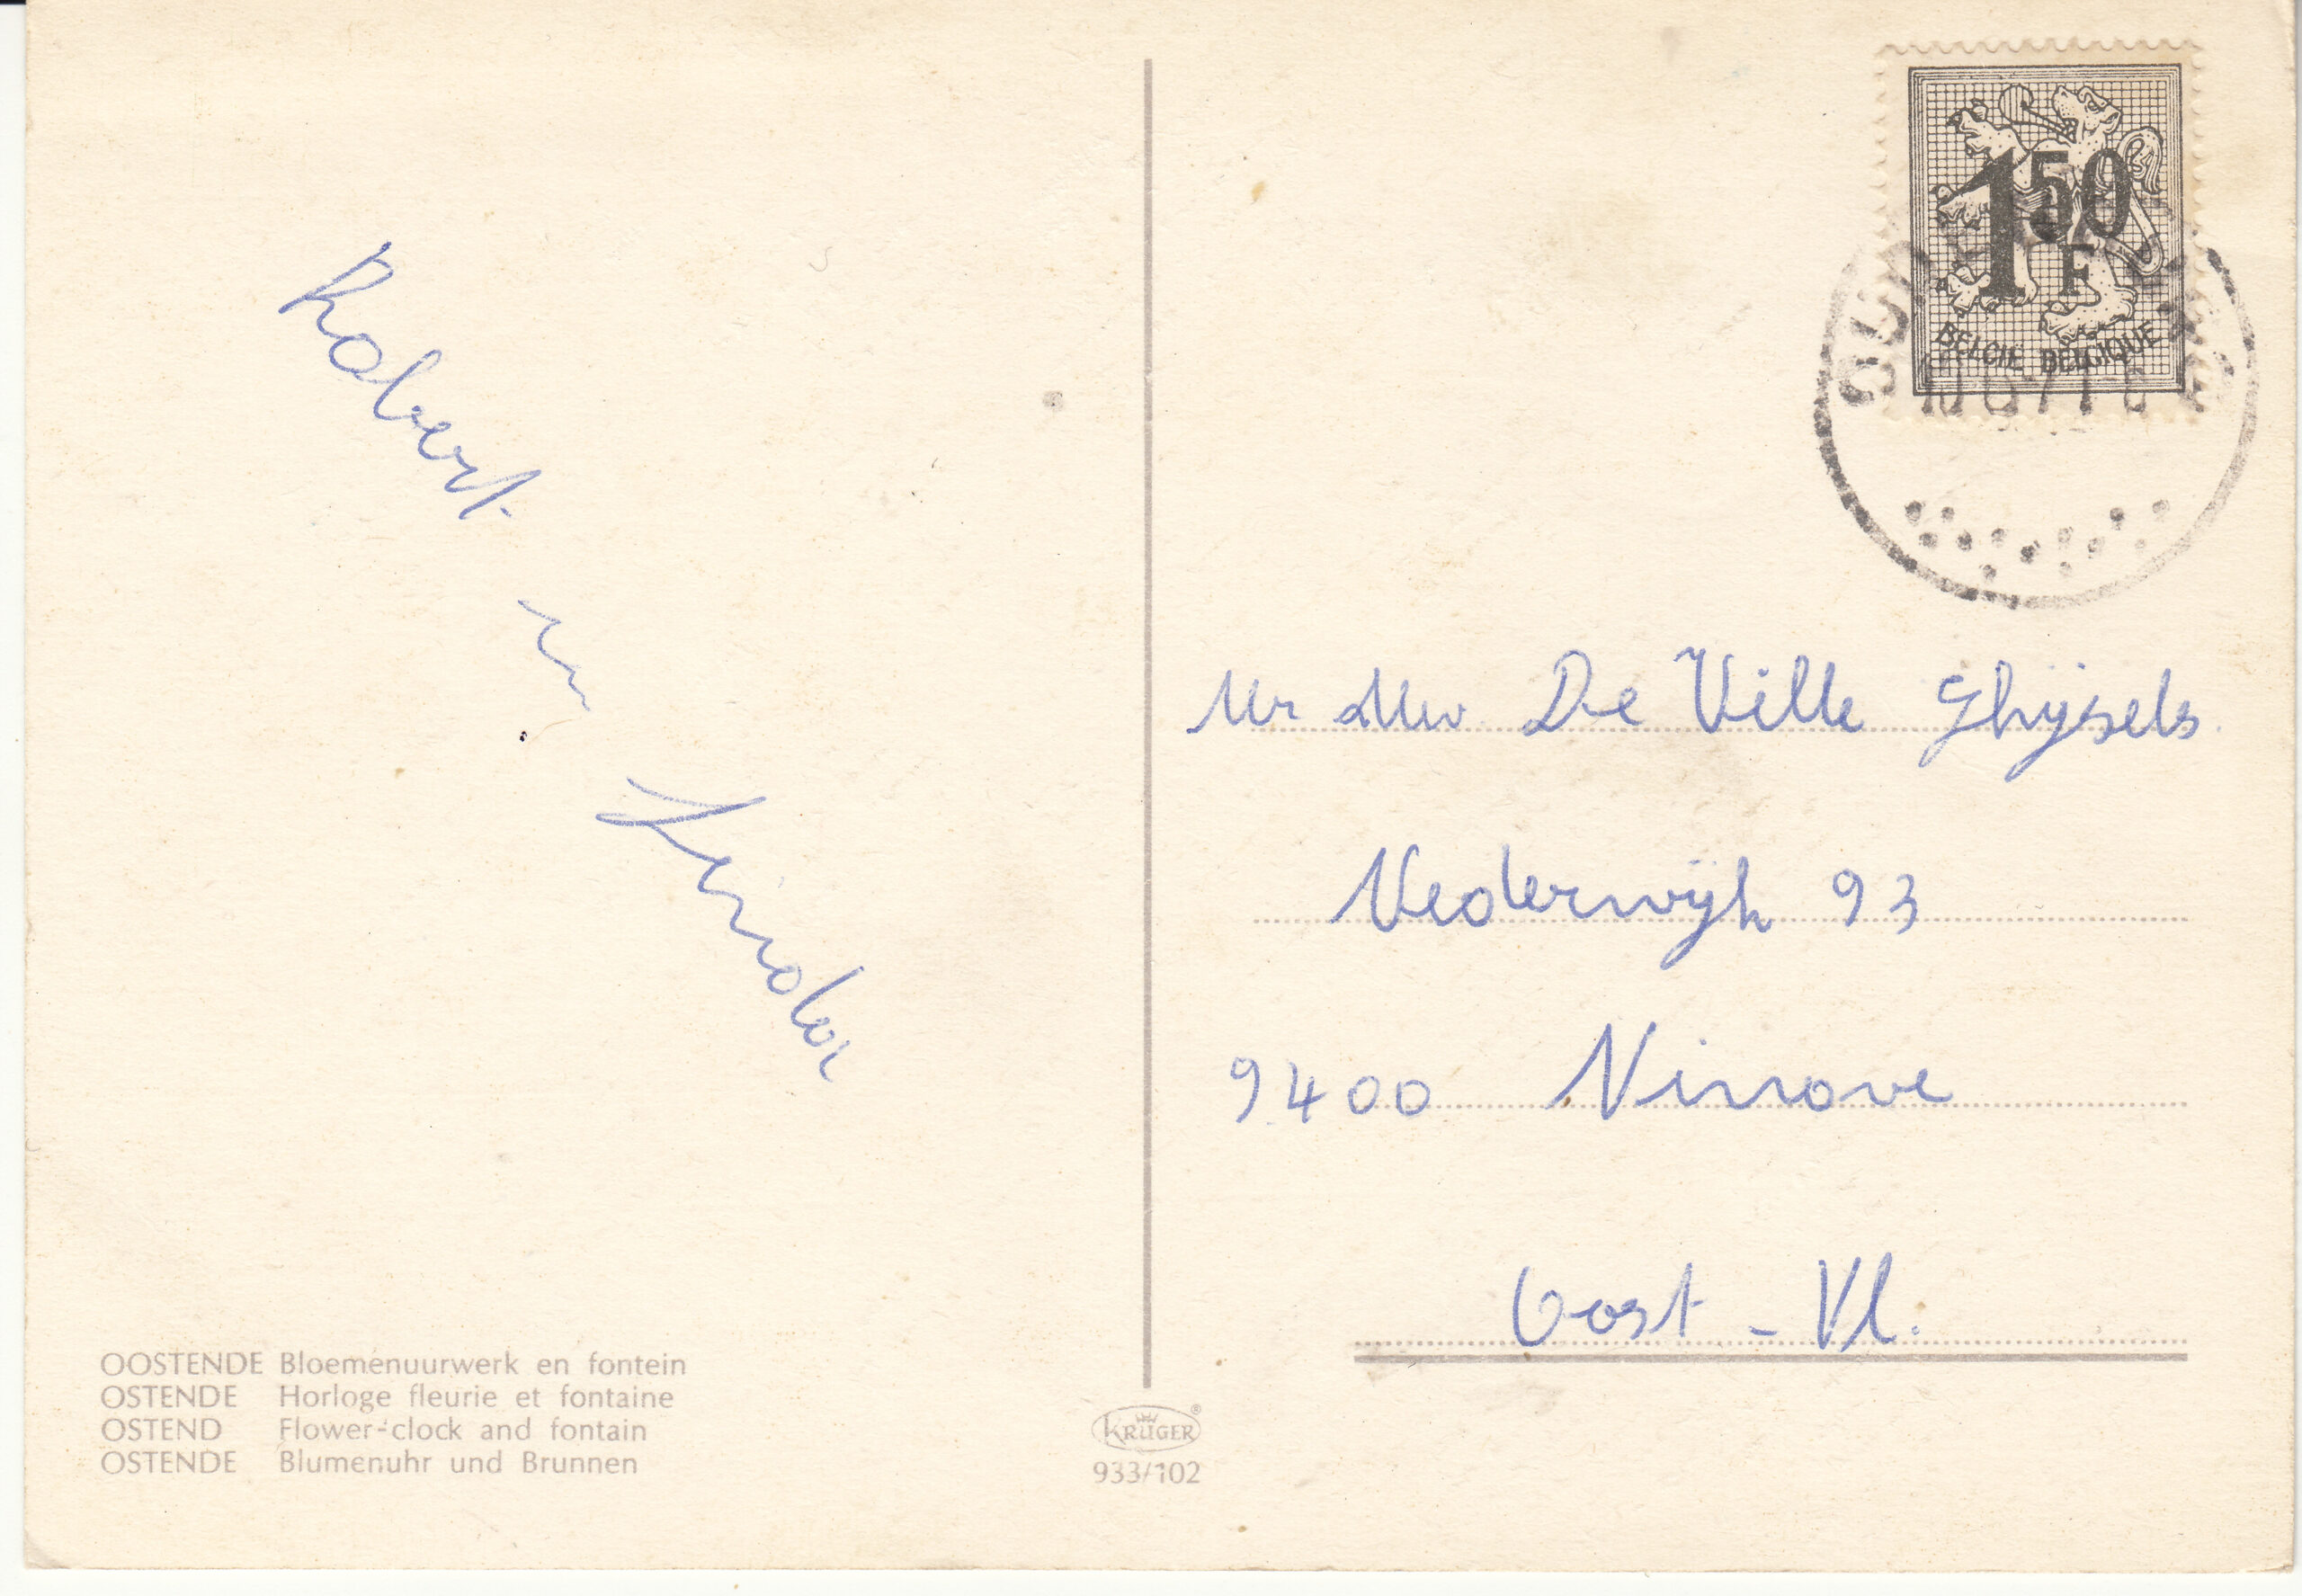 Robert en
Mr Mw. De Ville Ghijsels.
Nederwijk 93
9400 Ninove
Oost - Vl.
1 50 F
BELGIE BELGIQUE
OOSTENDE Bloemenuurwerk en fontein
OSTENDE Horloge fleurie et fontaine
OSTEND Flower-clock and fontain
OSTENDE Blumenuhr und Brunnen
KRÜGER®
933/102